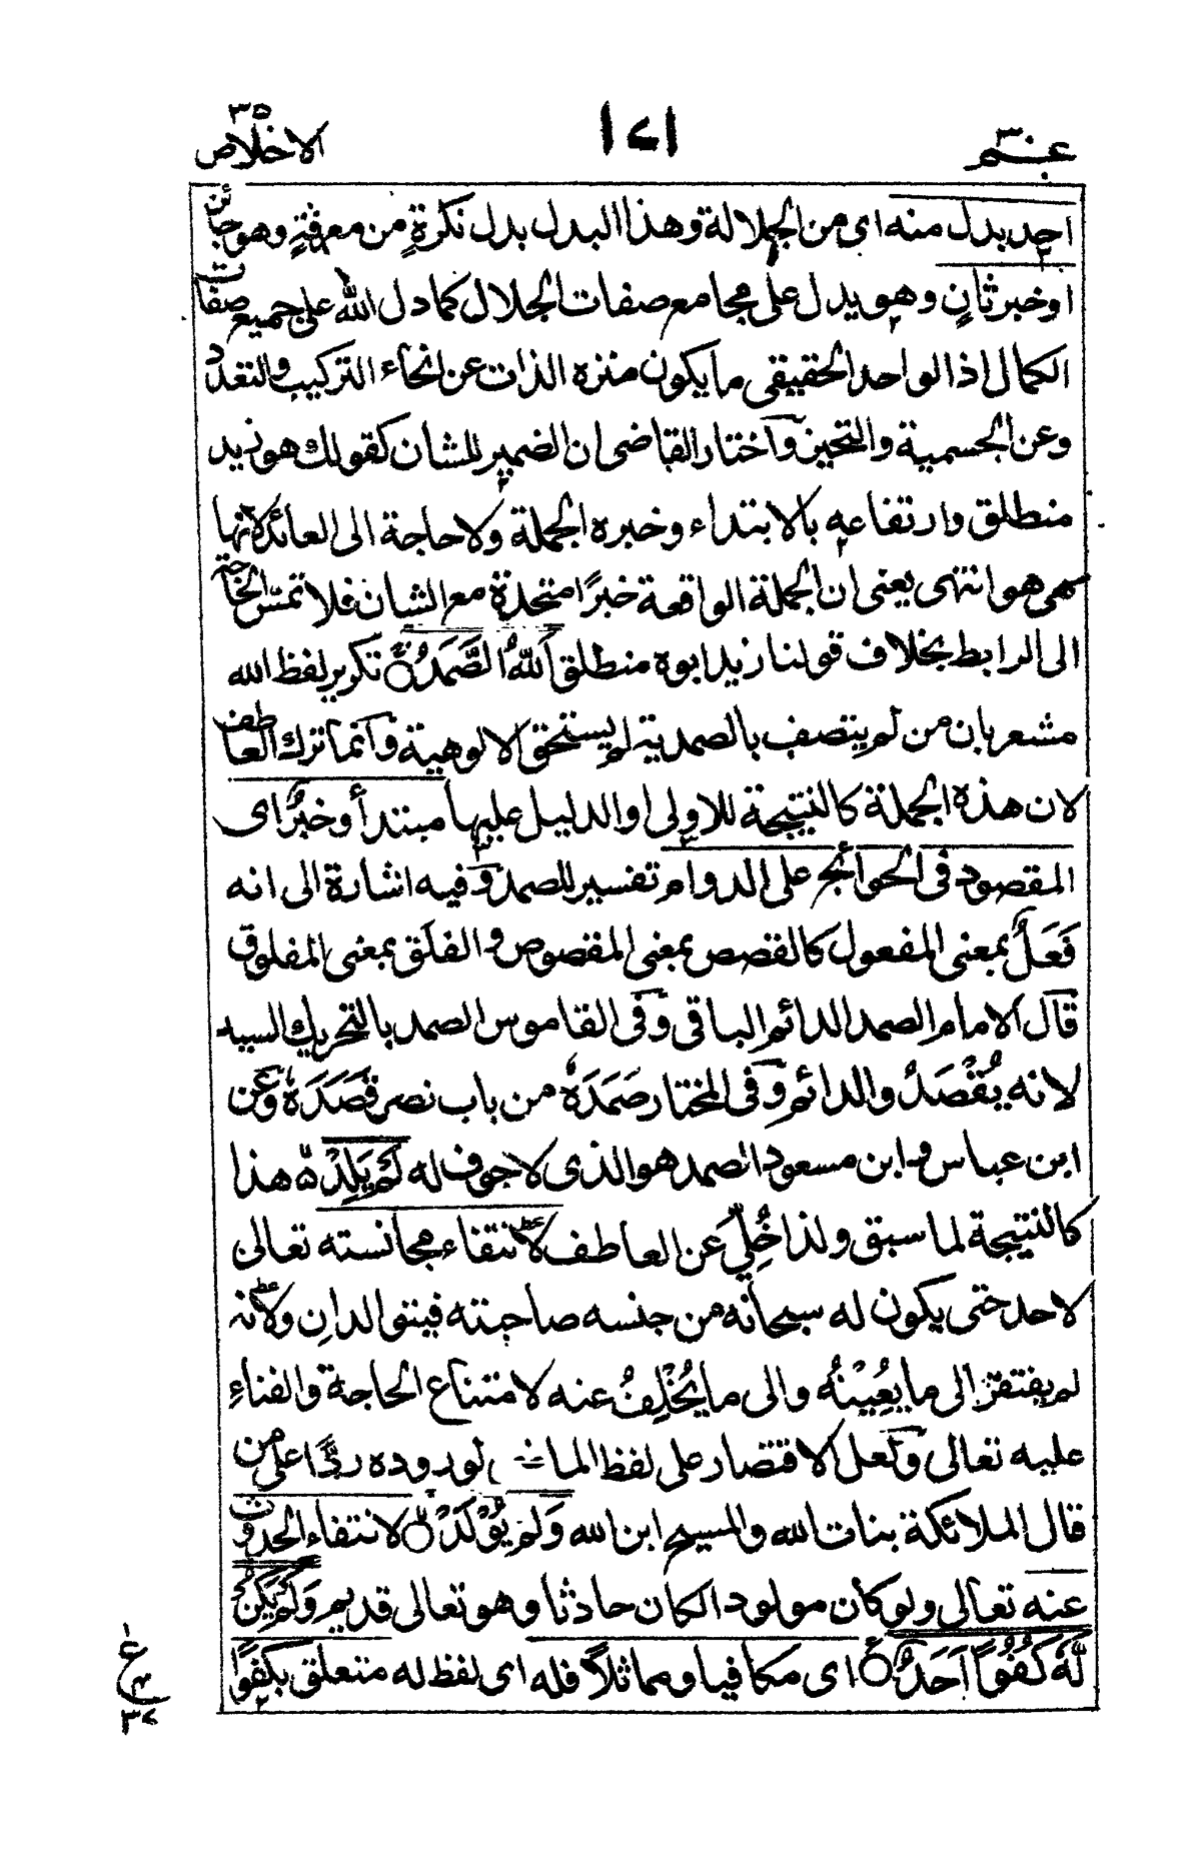 عم ٣٠
١٧١
الاخلاص ٣٥
احد بدل منه اى من الجلالة وهذا البدل بدل نكرةٍ من معرفةٍ وهو جائن
اوخبر ثانٍ وهو يدل على مجامع صفات الجلال كما دل الله على جميع صفات
الكمال اذ الواحد الحقيقى ما يكون منزه الذات عن انحاء التركيب والتعدد
وعن الجسمية والتحيز واختار القاضى ان الضمير للشان كقولك هو زيد
منطلق وارتفاعه بالابتداء وخبره الجملة ولا حاجة الى العائد لانها
هى هو انتهى يعنى ان الجملة الواقعة خبرًا متحدة مع الشان فلا تمس الحاجة
الى الرابط بخلاف قولنا زيد ابوه منطلق اَللّٰهُ الصَّمَدُ تكرير لفظ الله
مشعر بان من لم يتصف بالصمدية لم يستحق الالوهية وانما ترك العاطف
لان هذه الجملة كالنتيجة للاولى او الدليل عليها مبتدأ وخبرٌ اى
المقصود فى الحوائج على الدوام تفسير للصمد وفيه اشارة الى انه
فَعَلٌ بمعنى المفعول كالقصص بمعنى المقصوص والفلَق بمعنى المفلوق
قال الامام الصمد الدائم الباقى وفى القاموس الصمد بالتحريك السيد
لانه يُقْصَدُ والدائم وفى المختار صَمَدَهٗ من باب نصر قَصَدَهٗ وعن
ابن عباس وابن مسعود الصمد هو الذى لا جوف له لَمْ يَلِدْ هذا
كالنتيجة لما سبق ولذا خُلِّيَ عن العاطف لانتفاء مجانسته تعالى
لاحد حتى يكون له سبحانه من جنسه صاحبته فيتوالدان ولانه
لم يفتقر الى ما يعِيْنُهُ والى ما يُخْلِفُ عنه لامتناع الحاجة والفناءِ
عليه تعالى ولعل الاقتصار على لفظ الماضى لوروده ردًّا على من
قال الملائكة بنات الله والمسيح ابن الله وَلَمْ يُوْلَدْ لانتفاء الحدوث
عنه تعالى ولو كان مولود الكان حادثا وهو تعالى قديم وَلَمْ يَكُنْ
لَّهٗ كُفُوًا اَحَدٌ اى مكافيا ومماثلاً فله اى لفظ له متعلق بكفوًا
ع
٣٧